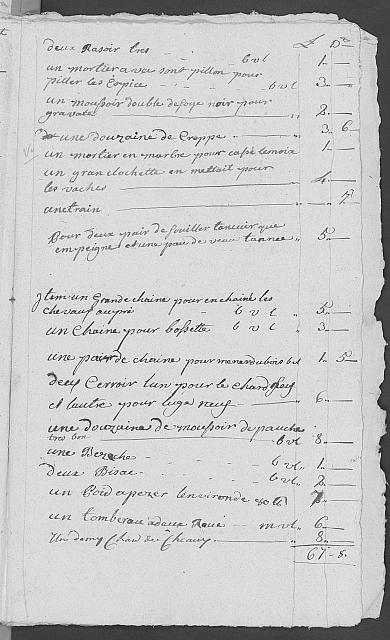 ₶ Ds
deux Rasoir tres - - - b v l 1.—
un mortier avec sont pillon pour
piller les Epice - - b v l 3.—
un moussoir double de soye noir pour
gravate 2.—
une douzaine de Croppe 3. 6
un mortier en marbre pour cassé 1.—
un gran clochette en mettail pour
les vaches 4.—
une train 7
Pour deux pair de souiller que
empeigne et une pau de veau tannee 5.—
Item un Grande chaine pour enchaine les
chevaux aupré b v l 5.—
un Chaine pour bossette b v l 3.—
une pair de chaine pour mener du bois b v l 1. 5—
deux Cerroir lun pour le chard
et lautre pour luge neuf 6.—
une douzaine de mousoir de pauche
tres bon b v l 8.—
une Berche - - - b v l 1.—
deux Bisac - - - b v l 2.—
un Poid a pezer lenviron de 80 ll
un tombereau a deux Roue - - m v l 6.—
Un demy Char de Cheaux 8.
67 - 8.